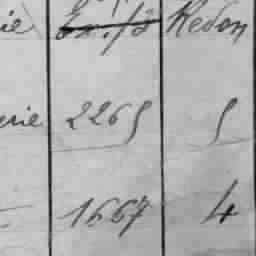 ie Redon
erie 2265 5
1667 4